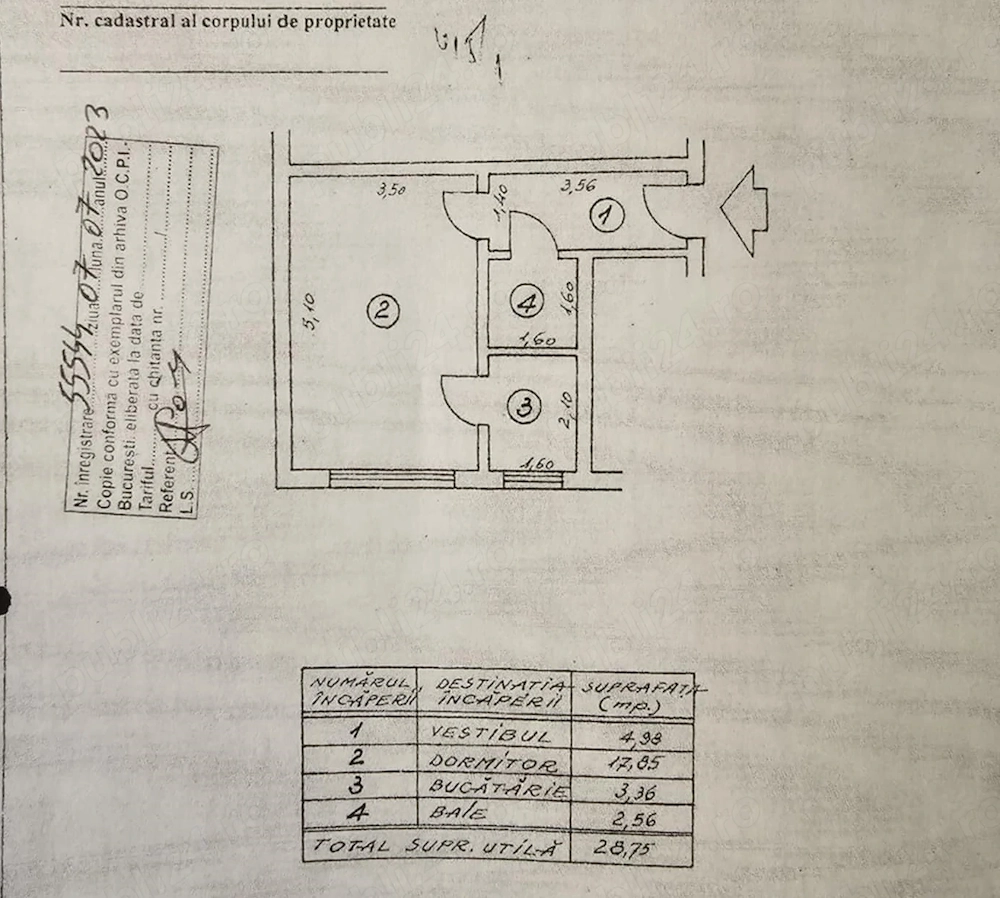 Nr. cadastral al corpului de proprietate
Nr. înregistrare 55544 ziua 07 luna 07 anul 2023
Copie conformă cu exemplarul din arhiva O.C.P.I.
București, eliberată la data de
Tariful cu chitanta nr. /
Referent
L.S.
3,50
1,40
3,56
1
5,10
2
4
1,60
1,60
3
2,10
1,60
NUMĂRUL ÎNCĂPERII DESTINAȚIA ÎNCĂPERII SUPRAFAȚA (mp.)
1 VESTIBUL 4,98
2 DORMITOR 17,85
3 BUCĂTĂRIE 3,36
4 BAIE 2,56
TOTAL SUPR. UTILĂ 28,75